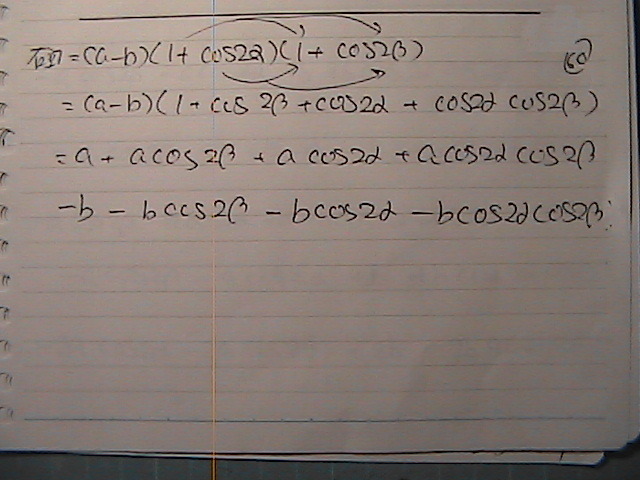 右式=(a-b)(1+cos2α)(1+cos2β)
=(a-b)(1+cos2β+cos2α+cos2αcos2β)
=a+acos2β+acos2α+acos2αcos2β
-b-bcos2β-bcos2α-bcos2αcos2β